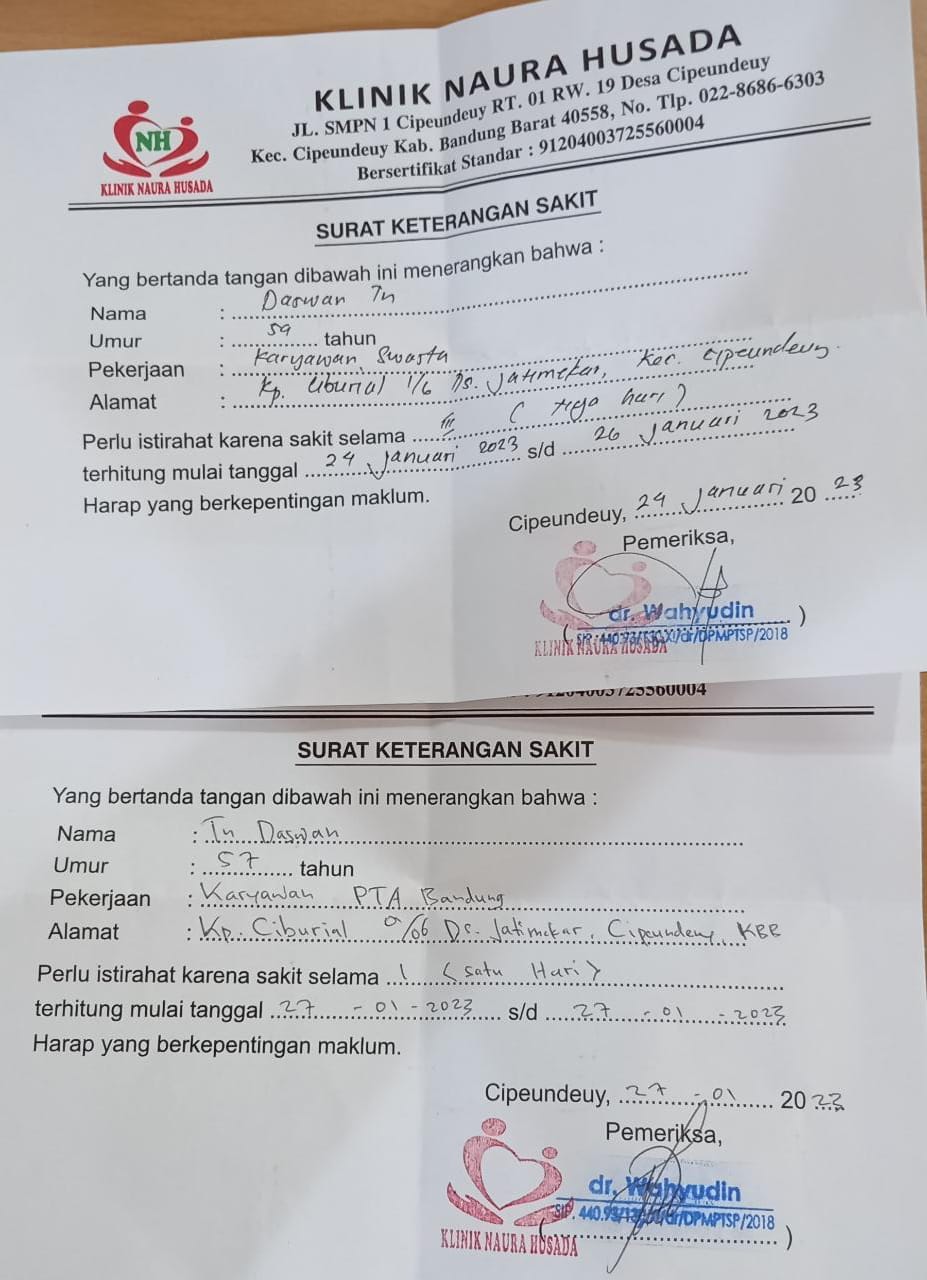 KLINIK NAURA HUSADA
JL. SMPN 1 Cipeundeuy RT. 01 RW. 19 Desa Cipeundeuy
Kec. Cipeundeuy Kab. Bandung Barat 40558, No. Tlp. 022-8686-6303
Bersertifikat Standar : 91204003725560004
NH
KLINIK NAURA HUSADA
SURAT KETERANGAN SAKIT
Yang bertanda tangan dibawah ini menerangkan bahwa :
Nama : Daswan Tn
Umur : 59 tahun
Pekerjaan : Karyawan Swasta
Alamat : Kp. Ciburial 1/6 Ds. Jatimekar, Kec. Cipeundeuy
Perlu istirahat karena sakit selama ( tiga hari )
terhitung mulai tanggal 24 Januari 2023 s/d 26 Januari 2023
Harap yang berkepentingan maklum.
Cipeundeuy, 24 Januari 20 23
Pemeriksa,
( dr. Wahyudin )
/dr/DPMPTSP/2018
KLINIK NAURA HUSADA
91204003725560004
SURAT KETERANGAN SAKIT
Yang bertanda tangan dibawah ini menerangkan bahwa :
Nama : Tn Daswan
Umur : 57 tahun
Pekerjaan : Karyawan PTA Bandung
Alamat : Kp. Ciburial /06 Ds. Jatimekar, Cipeundeuy, KBB
Perlu istirahat karena sakit selama 1 (satu Hari)
terhitung mulai tanggal 27 - 01 - 2023 s/d 27 - 01 - 2023
Harap yang berkepentingan maklum.
Cipeundeuy, 27 - 01 20 23
Pemeriksa,
dr. Wahyudin
SIP. 440.93/ /dr/DPMPTSP/2018
KLINIK NAURA HUSADA ( )